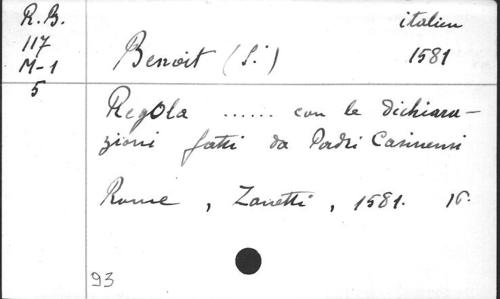 R.B.
117
M-1
5
italien
1581
Benoit (S.)
Regola ...... con le dichiara-
zioni fatti da Padri Casinensi
Rome, Zanetti, 1581. 16.
93